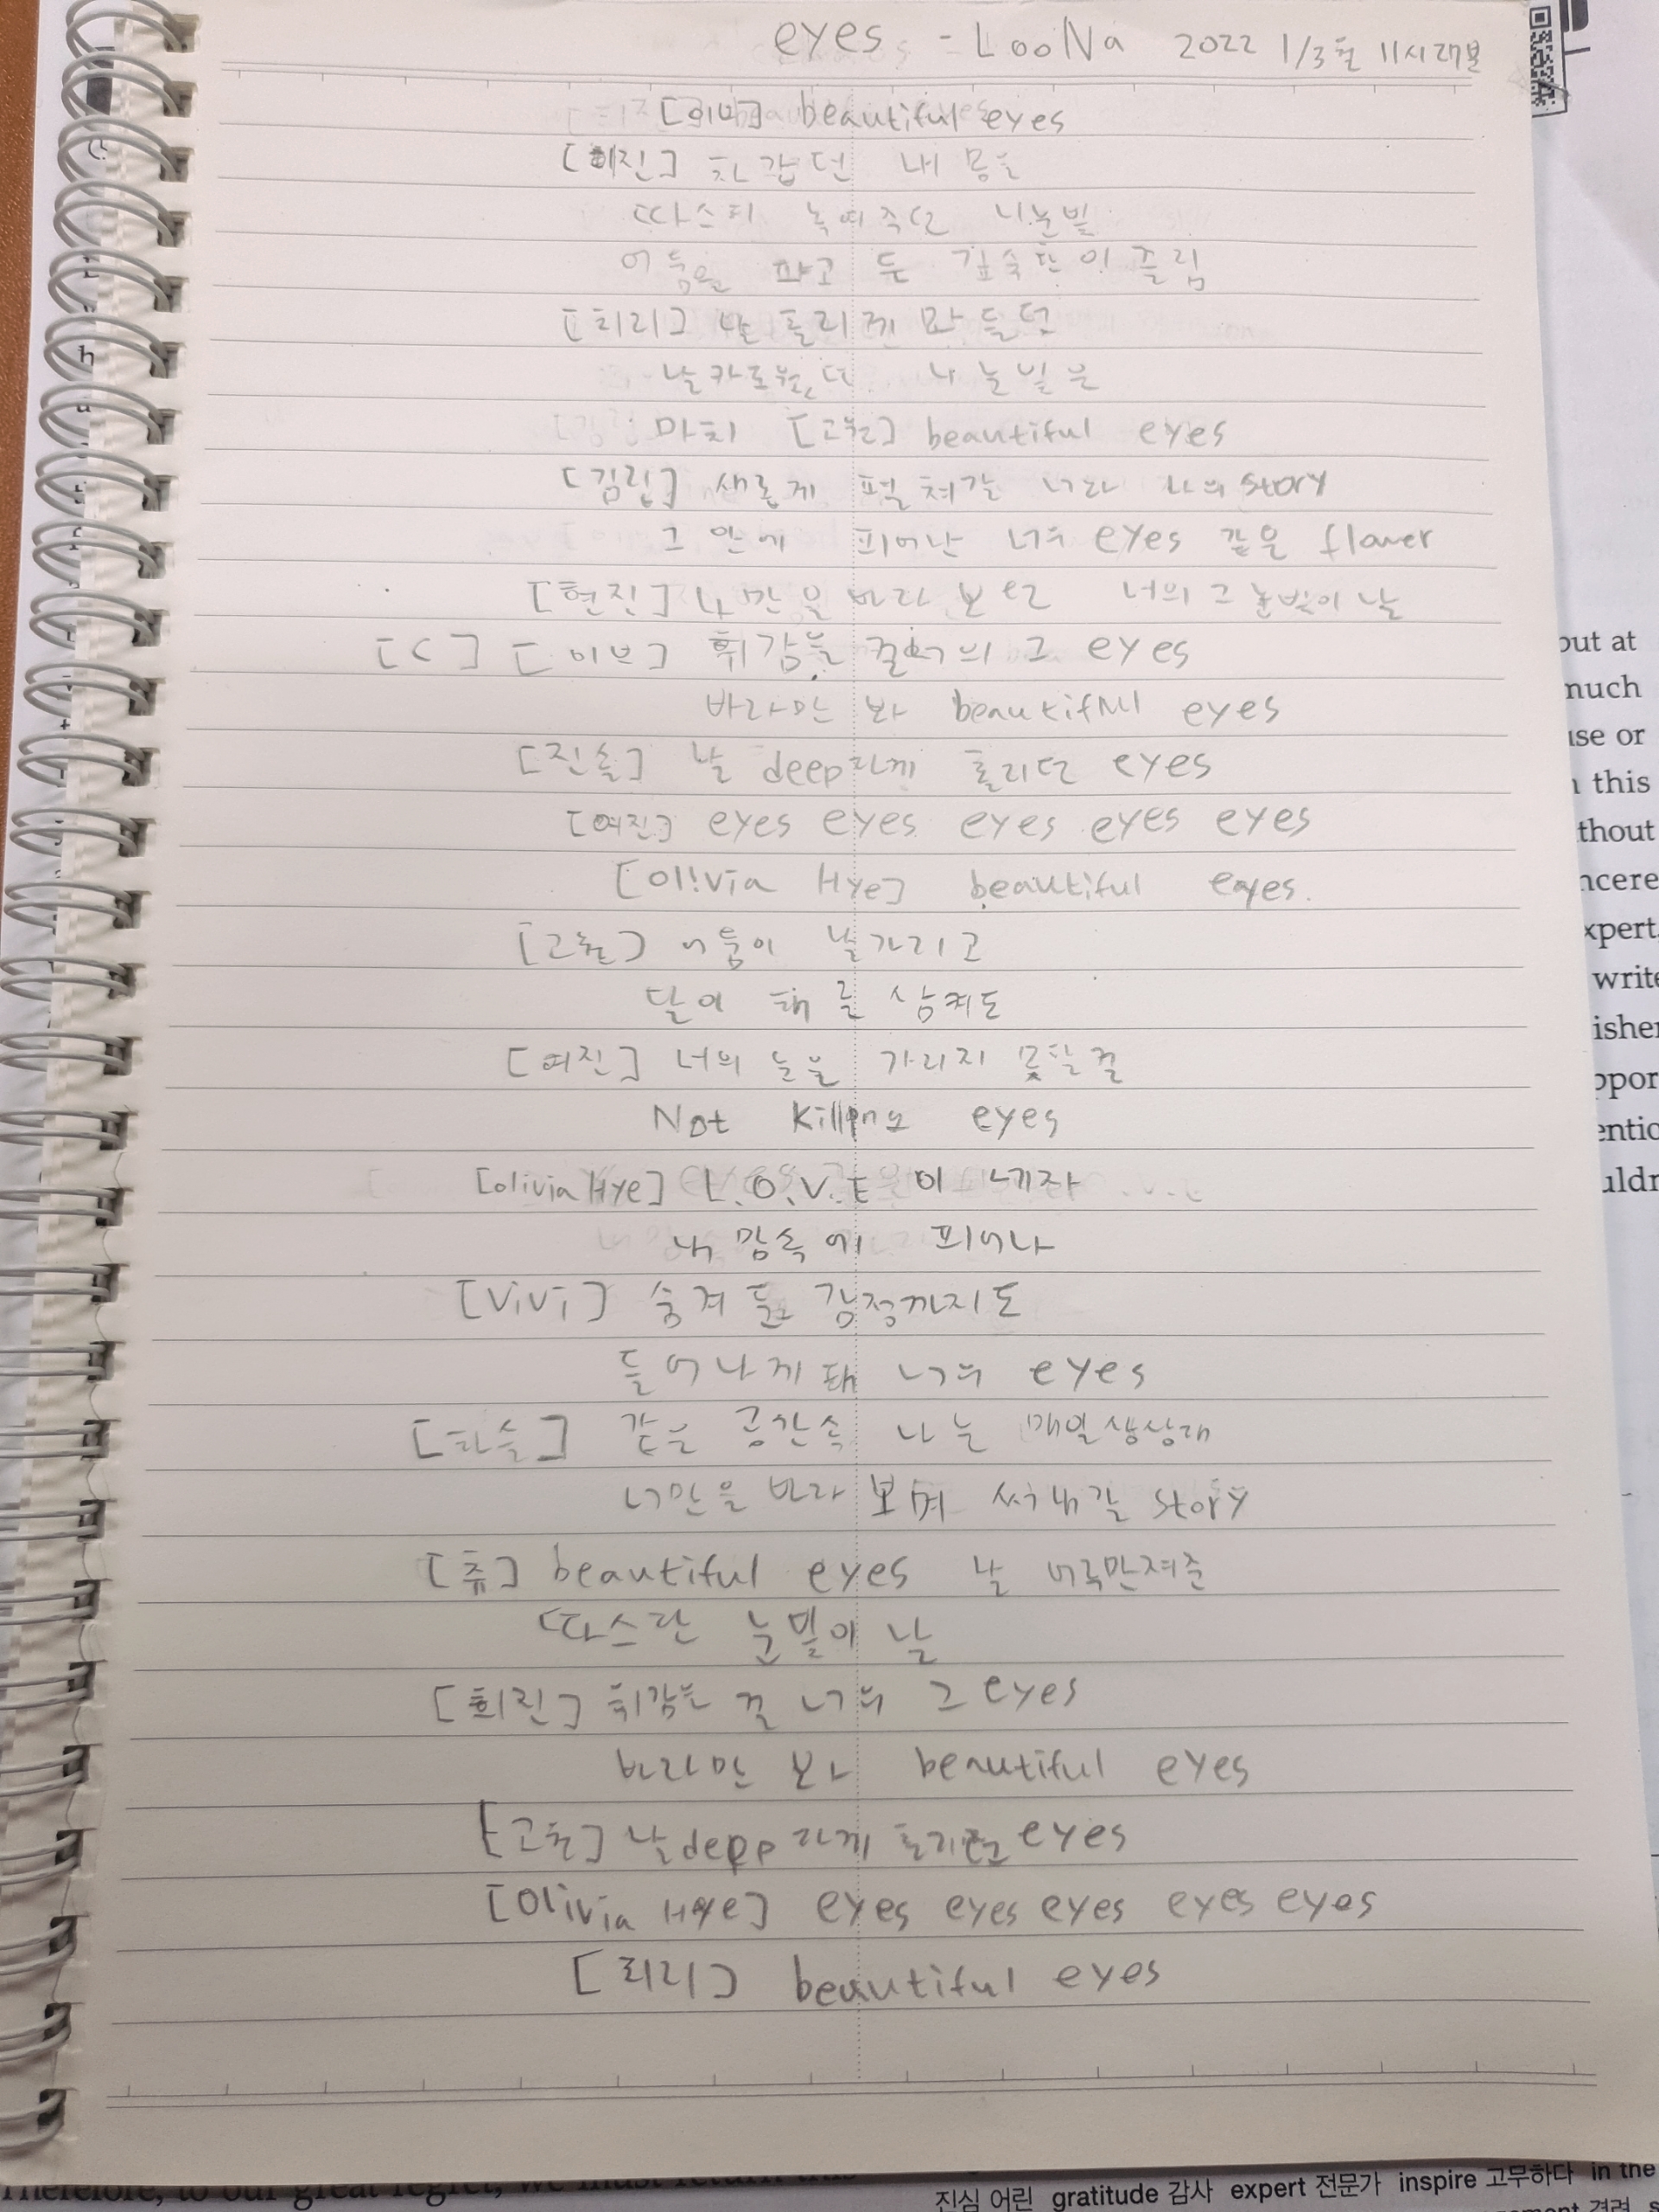 eyes - LooNa 2022 1/3월 11시27분
beautiful eyes
[희진] 차갑던 내 몸을
따스히 녹여주던 니눈빛
어둠을 파고 든 깊숙한 이 끌림
[최리] 날 홀리게 만들던
날카로웠던 니 눈빛은
마치 [고원] beautiful eyes
[김립] 새롭게 펼쳐갈 너와 나의 story
그 안에 피어난 너의 eyes 같은 flower
[현진] 나만을 바라보던 너의 그 눈빛이 날
[<] [이브] 휘감을 걸 너의 그 eyes
바라만 봐 beautiful eyes
[진솔] 날 deep하게 홀리던 eyes
[여진] eyes eyes eyes eyes eyes
[Olivia Hye] beautiful eyes.
[고원] 어둠이 날가리고
달이 해를 삼켜도
[여진] 너의 눈을 가리지 못할걸
Not Killing eyes
[olivia Hye] L.O.V.E 이 네자
내 맘속에 피어나
[ViVi] 숨겨둔 감정까지도
들어나게 돼 너의 eyes
[하슬] 같은 공간속 나는 매일상상해
너만을 바라보며 써내갈 story
[츄] beautiful eyes 날 어루만져준
따스한 눈빛이 날
[희진] 휘감는 걸 너의 그 eyes
바라만 봐 beautiful eyes
[고원] 날depp하게 홀리던 eyes
[Olivia Hye] eyes eyes eyes eyes eyes
[최리] beautiful eyes
out at
much
use or
this
thout
ncere
xpert,
write
진심 어린 gratitude 감사 expert 전문가 inspire 고무하다 in the